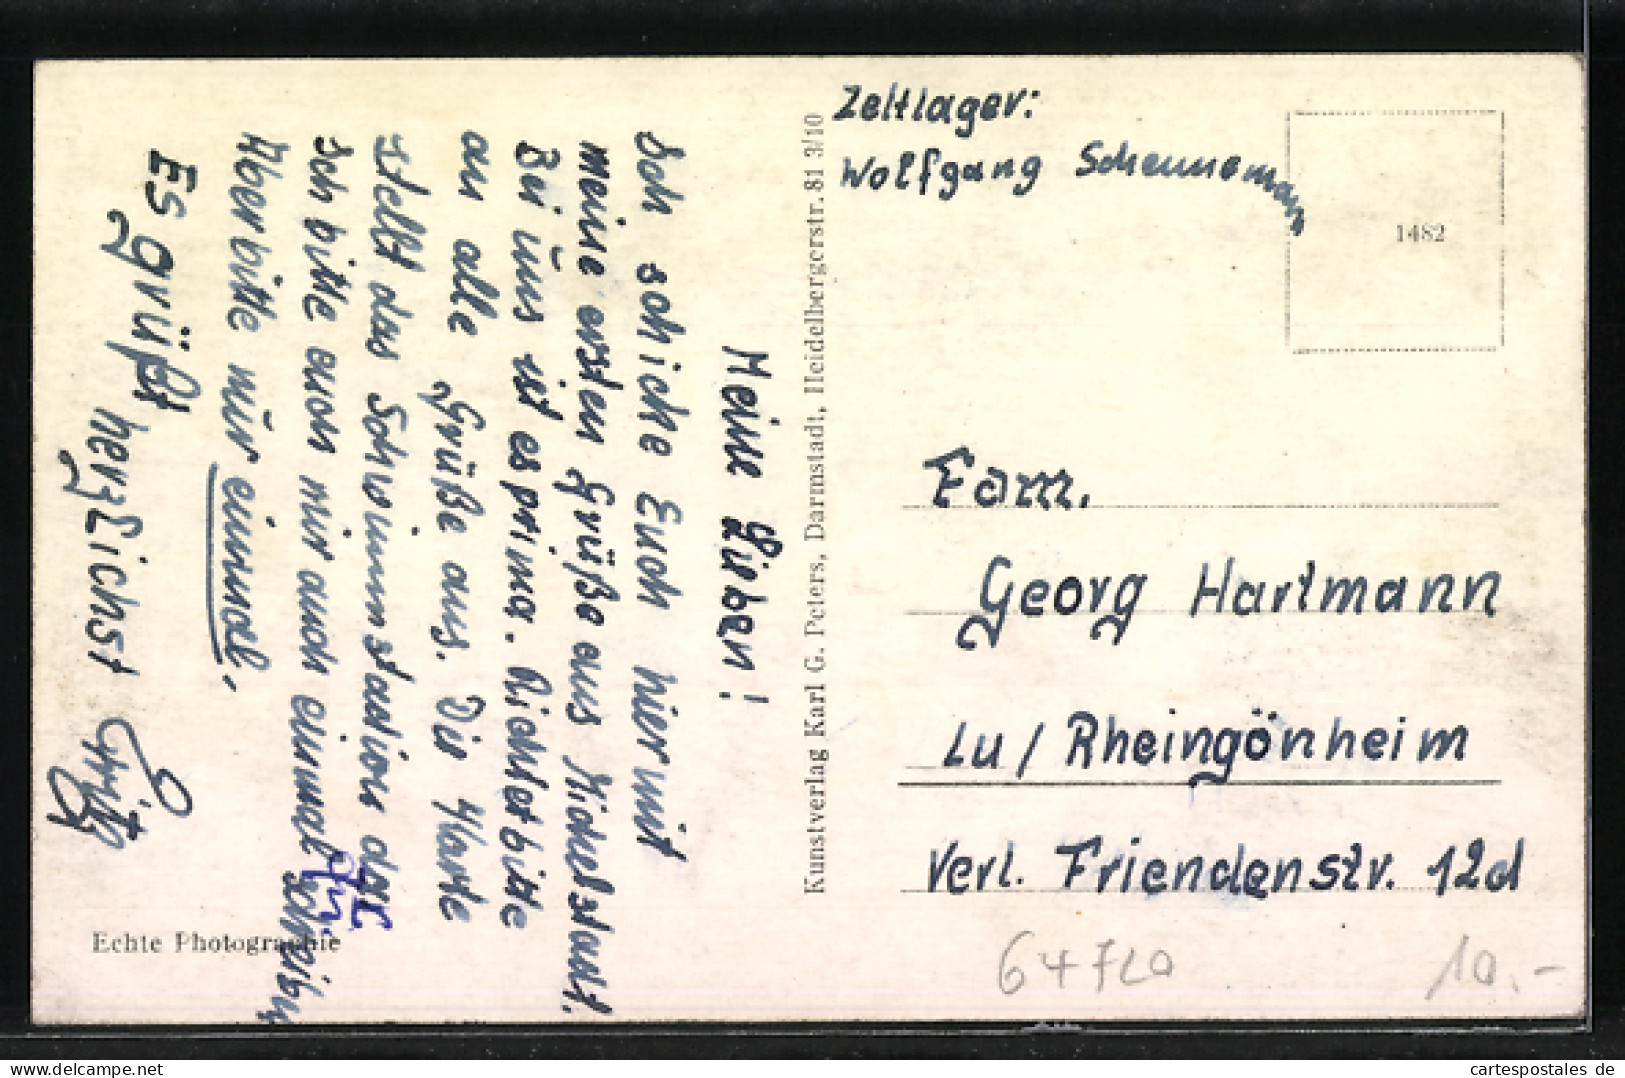 Zeltlager:
Wolfgang Scheunemann
1482
Fam.
Georg Hartmann
Lu / Rheingönheim
Verl. Friendenstr. 12d
64720
10.-
Kunstverlag Karl G. Peters, Darmstadt, Heidelbergerstr. 81 3/10
Meine Lieben!
Ich schicke Euch hiermit
meine ersten Grüße aus
Bei uns ist es prima. Richtet bitte
an alle Grüße aus. Die Karte
stellt das Schwimmstadion dar.
Ich bitte euch mir auch einmal schreiben
Aber bitte nur einmal.
Es grüßt
herzlichst Fritz
Echte Photographie
www.delcampe.net
cartespostales de